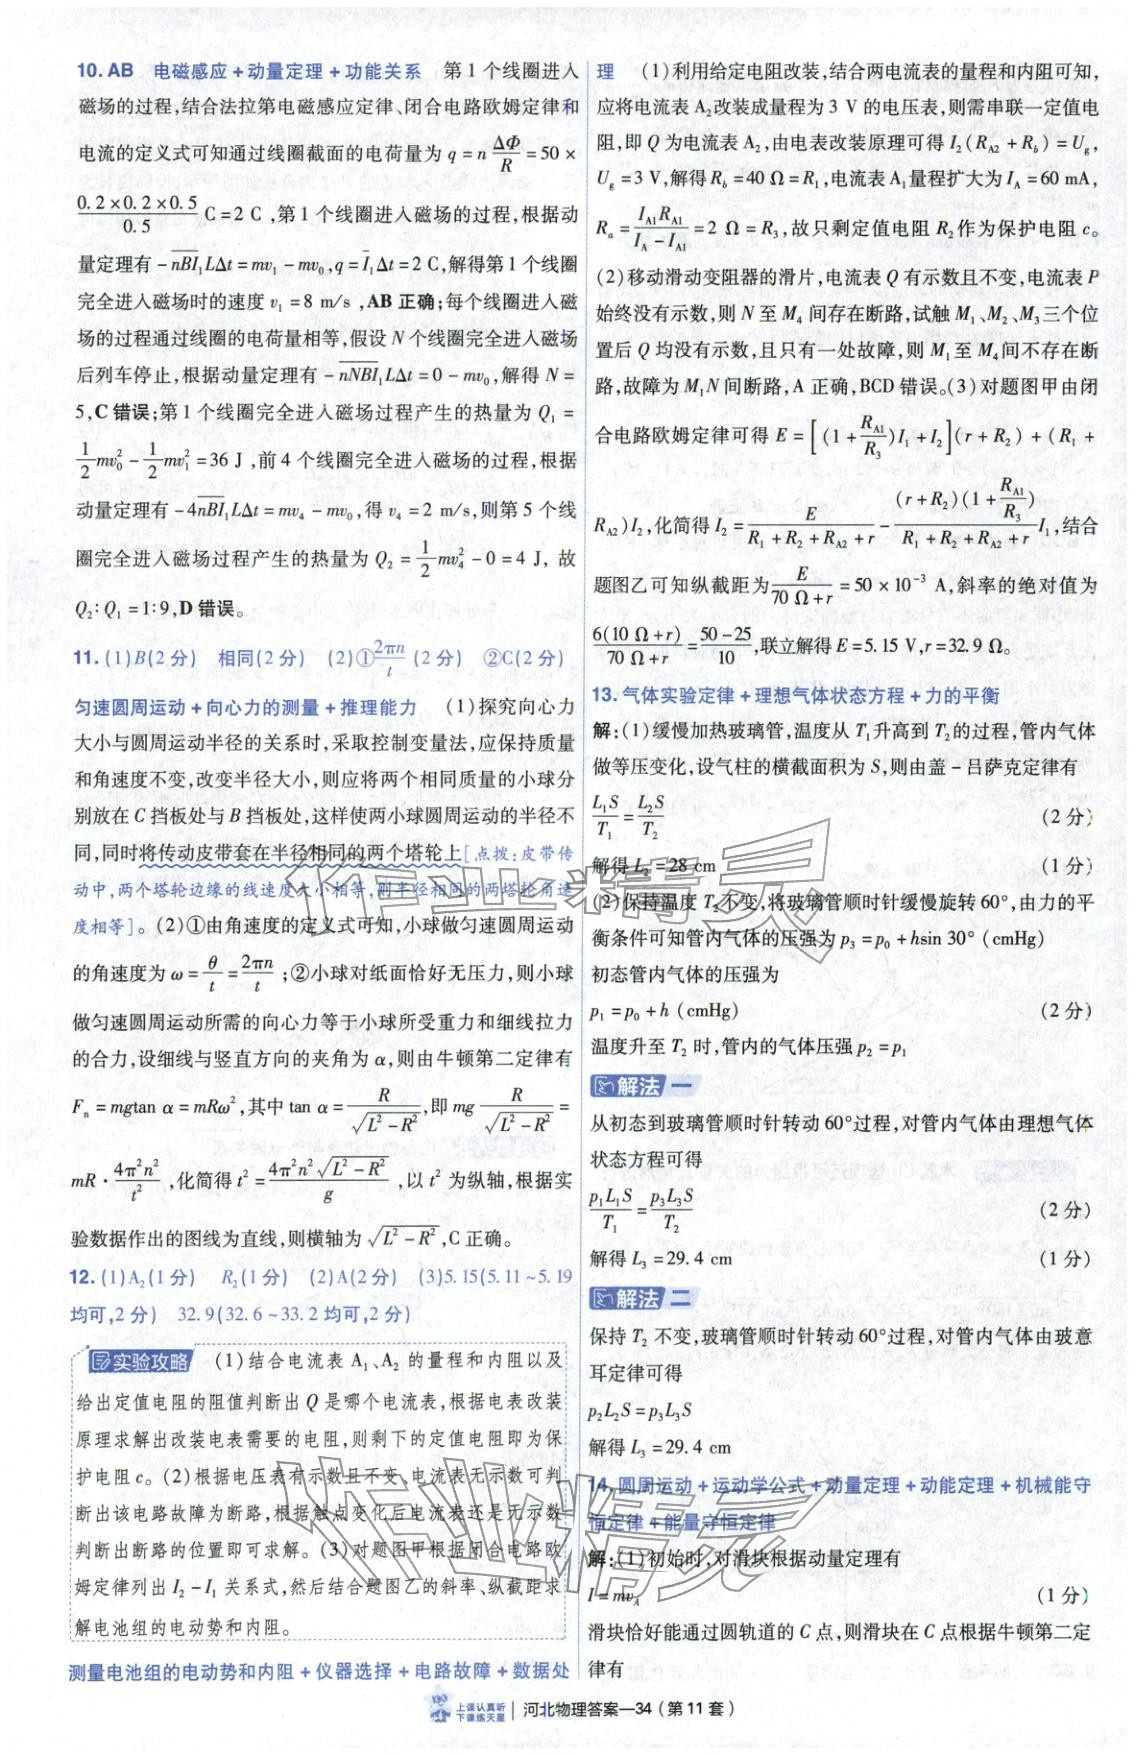 10. AB 电磁感应+动量定理+功能关系 第1个线圈进入
磁场的过程,结合法拉第电磁感应定律、闭合电路欧姆定律和
电流的定义式可知通过线圈截面的电荷量为 q = n ΔΦ/R = 50 ×
(0.2×0.2×0.5)/0.5 C = 2 C,第1个线圈进入磁场的过程,根据动
量定理有 −nBI₁LΔt = mv₁ − mv₀, q = I₁Δt = 2 C,解得第1个线圈
完全进入磁场时的速度 v₁ = 8 m/s,AB 正确;每个线圈进入磁
场的过程通过线圈的电荷量相等,假设 N 个线圈完全进入磁场
后列车停止,根据动量定理有 −nNBI₁LΔt = 0 − mv₀,解得 N =
5,C 错误;第1个线圈完全进入磁场过程产生的热量为 Q₁ =
1/2 mv₀² − 1/2 mv₁² = 36 J,前4个线圈完全进入磁场的过程,根据
动量定理有 −4nBI₁LΔt = mv₄ − mv₀,得 v₄ = 2 m/s,则第5个线
圈完全进入磁场过程产生的热量为 Q₂ = 1/2 mv₄² − 0 = 4 J,故
Q₂∶Q₁ = 1∶9,D 错误。
11. (1)B(2分) 相同(2分) (2)①2πn/t (2分) ②C(2分)
匀速圆周运动+向心力的测量+推理能力 (1)探究向心力
大小与圆周运动半径的关系时,采取控制变量法,应保持质量
和角速度不变,改变半径大小,则应将两个相同质量的小球分
别放在 C 挡板处与 B 挡板处,这样使两小球圆周运动的半径不
同,同时将传动皮带套在半径相同的两个塔轮上[点拨:皮带传
动中,两个塔轮边缘的线速度大小相等,则半径相同的两塔轮角速
度相等]。(2)①由角速度的定义式可知,小球做匀速圆周运动
的角速度为 ω = θ/t = 2πn/t;②小球对纸面恰好无压力,则小球
做匀速圆周运动所需的向心力等于小球所受重力和细线拉力
的合力,设细线与竖直方向的夹角为 α,则由牛顿第二定律有
Fₙ = mgtan α = mRω²,其中 tan α = R/√(L²−R²),即 mg R/√(L²−R²) =
mR · 4π²n²/t²,化简得 t² = 4π²n²√(L²−R²)/g,以 t² 为纵轴,根据实
验数据作出的图线为直线,则横轴为 √(L²−R²),C 正确。
12. (1)A₂(1分) R₂(1分) (2)A(2分) (3)5.15(5.11~5.19
均可,2分) 32.9(32.6~33.2 均可,2分)
实验攻略 (1)结合电流表 A₁、A₂ 的量程和内阻以及
给出定值电阻的阻值判断出 Q 是哪个电流表,根据电表改装
原理求解出改装电表需要的电阻,则剩下的定值电阻即为保
护电阻 c。(2)根据电压表有示数且不变,电流表无示数可判
断出该电路故障为断路,根据触点变化后电流表还是无示数
判断出断路的位置即可求解。(3)对题图甲根据闭合电路欧
姆定律列出 I₂ − I₁ 关系式,然后结合题图乙的斜率、纵截距求
解电池组的电动势和内阻。
测量电池组的电动势和内阻+仪器选择+电路故障+数据处
理 (1)利用给定电阻改装,结合两电流表的量程和内阻可知,
应将电流表 A₂改装成量程为 3 V 的电压表,则需串联一定值电
阻,即 Q 为电流表 A₂,由电表改装原理可得 I₂(R_A2 + R_b) = U_g,
U_g = 3 V,解得 R_b = 40 Ω = R₁,电流表 A₁量程扩大为 I_A = 60 mA,
R_a = I_A1R_A1/(I_A − I_A1) = 2 Ω = R₃,故只剩定值电阻 R₂作为保护电阻 c。
(2)移动滑动变阻器的滑片,电流表 Q 有示数且不变,电流表 P
始终没有示数,则 N 至 M₄ 间存在断路,试触 M₁、M₂、M₃三个位
置后 Q 均没有示数,且只有一处故障,则 M₁至 M₄间不存在断
路,故障为 M₁N 间断路,A 正确,BCD 错误。(3)对题图甲由闭
合电路欧姆定律可得 E = [(1 + R_A1/R₃)I₁ + I₂](r + R₂) + (R₁ +
R_A2)I₂,化简得 I₂ = E/(R₁ + R₂ + R_A2 + r) − (r + R₂)(1 + R_A1/R₃)/(R₁ + R₂ + R_A2 + r) I₁,结合
题图乙可知纵截距为 E/(70 Ω + r) = 50 × 10⁻³ A,斜率的绝对值为
6(10 Ω + r)/(70 Ω + r) = (50 − 25)/10,联立解得 E = 5.15 V, r = 32.9 Ω。
13. 气体实验定律+理想气体状态方程+力的平衡
解:(1)缓慢加热玻璃管,温度从 T₁升高到 T₂的过程,管内气体
做等压变化,设气柱的横截面积为 S,则由盖−吕萨克定律有
L₁S/T₁ = L₂S/T₂ (2分)
解得 L₂ = 28 cm (1分)
(2)保持温度 T₂不变,将玻璃管顺时针缓慢旋转60°,由力的平
衡条件可知管内气体的压强为 p₃ = p₀ + hsin 30° (cmHg)
初态管内气体的压强为
p₁ = p₀ + h (cmHg) (2分)
温度升至 T₂ 时,管内的气体压强 p₂ = p₁
解法一
从初态到玻璃管顺时针转动60°过程,对管内气体由理想气体
状态方程可得
p₁L₁S/T₁ = p₃L₃S/T₂ (2分)
解得 L₃ = 29.4 cm (1分)
解法二
保持 T₂ 不变,玻璃管顺时针转动60°过程,对管内气体由玻意
耳定律可得
p₂L₂S = p₃L₃S
解得 L₃ = 29.4 cm
14. 圆周运动+运动学公式+动量定理+动能定理+机械能守
恒定律+能量守恒定律
解:(1)初始时,对滑块根据动量定理有
I = mv_A (1分)
滑块恰好能通过圆轨道的 C 点,则滑块在 C 点根据牛顿第二定
律有
上课认真听
下课练天星
河北物理答案—34(第11套)
作业精灵
作业精灵